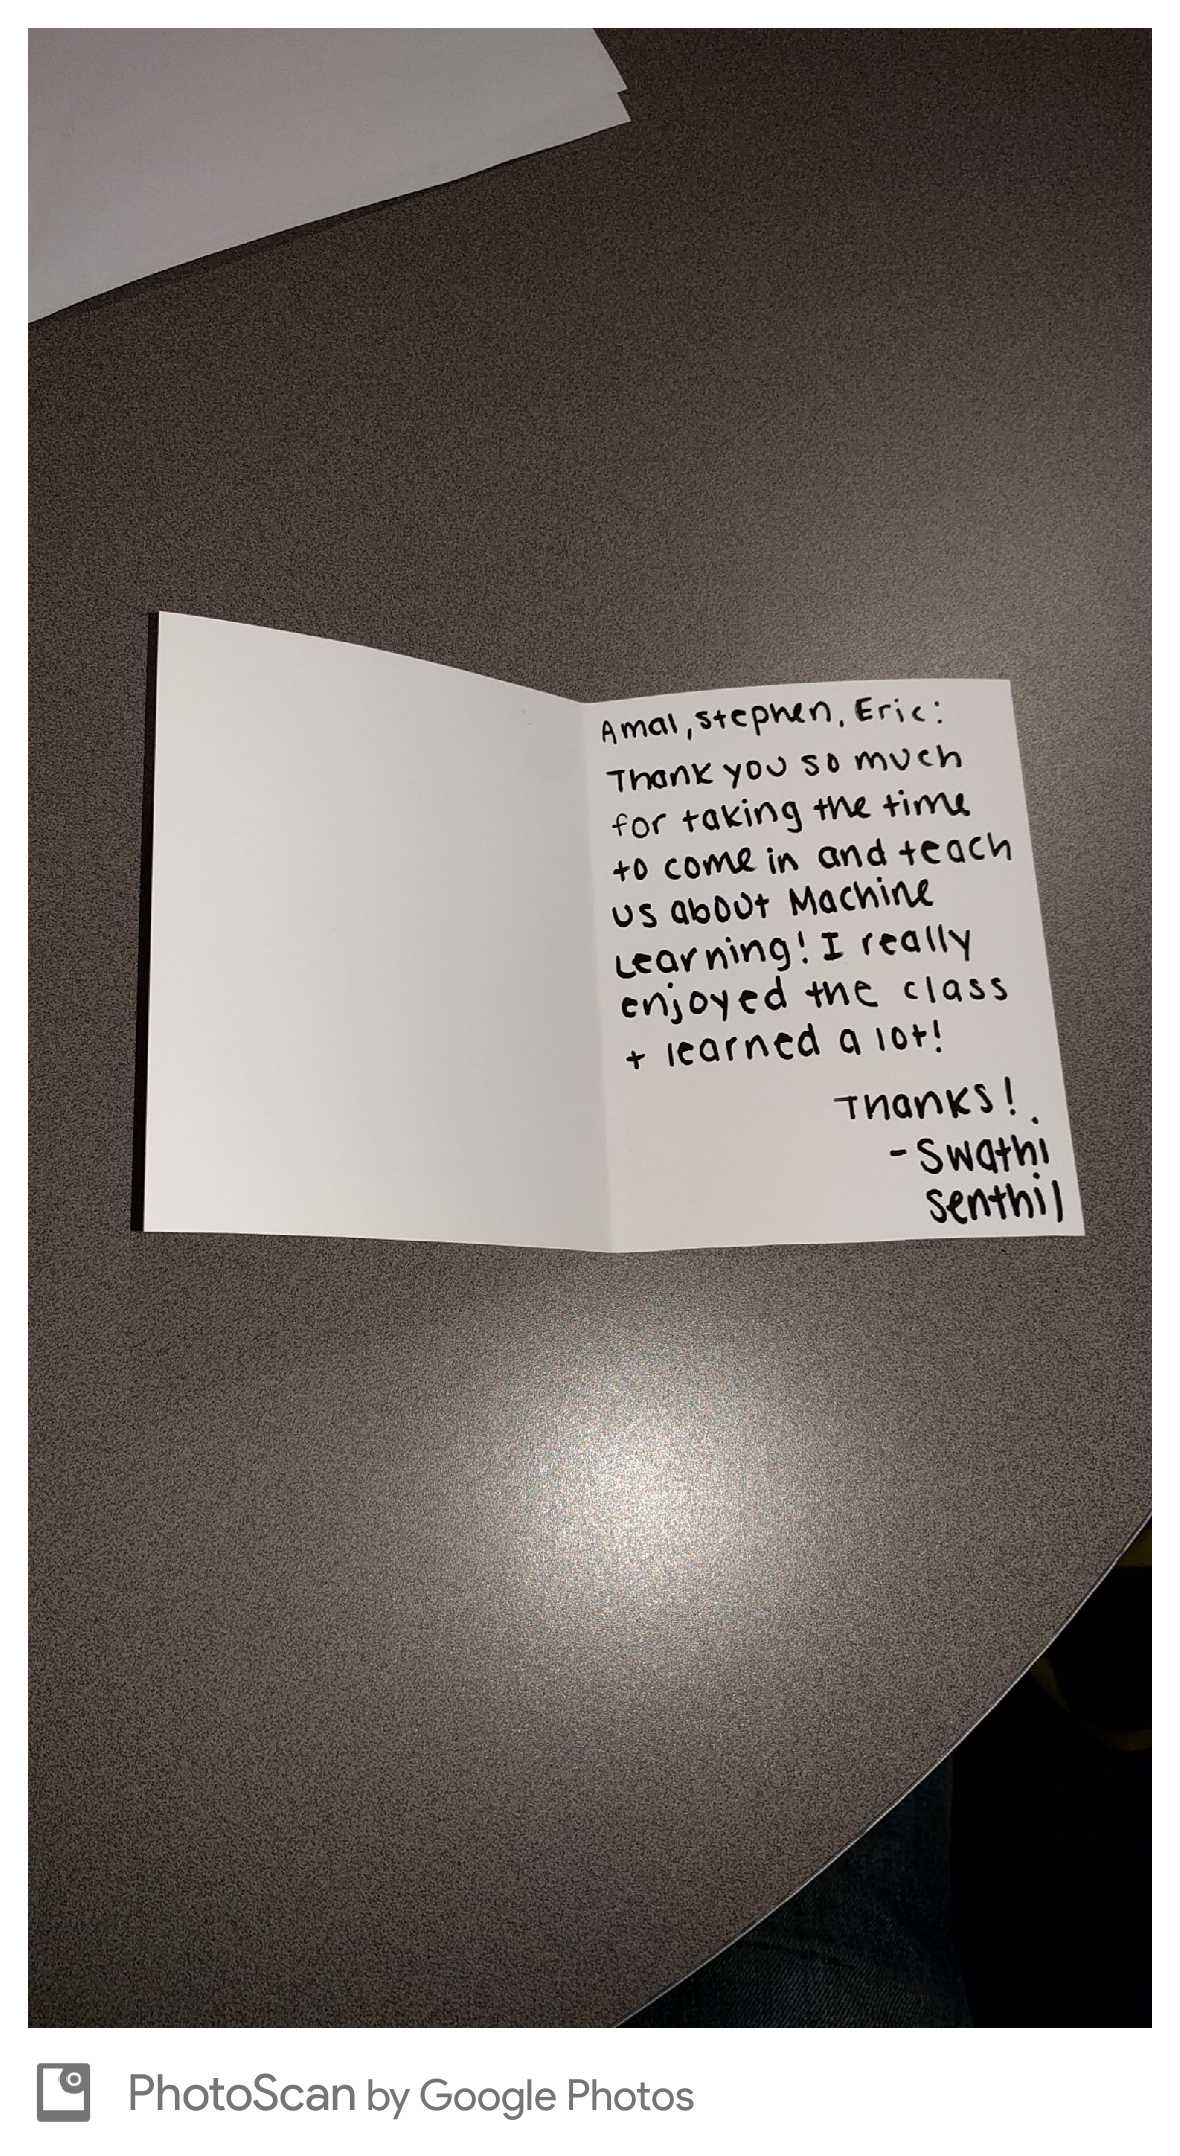 Amal, Stephen, Eric:
Thank you so much
for taking the time
to come in and teach
us about Machine
Learning! I really
enjoyed the class
+ learned a lot!
Thanks!
- Swathi
Senthil
PhotoScan by Google Photos